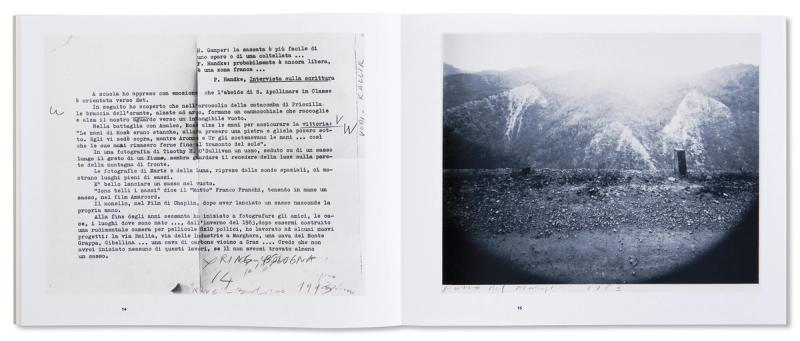 H. Gamper: la sassata è più facile di
uno sparo o di una coltellata ...
P. Handke: probabilmente è ancora libera,
è una zona franca ...
P. Handke, Intervista sulla scrittura
A scuola ho appreso con emozione che l'abside di S. Apollinare in Classe
è orientata verso Est.
In seguito ho scoperto che nell'arcosolio della catacomba di Priscilla
le braccia dell'orante, alzate ad arco, formano un cannocchiale che raccoglie
e alza il nostro sguardo verso un intangibile vuoto.
Nella battaglia con Amalec, Mosè alza le mani per assicurare la vittoria:
"Le mani di Mosè erano stanche, allora presero una pietra e gliela posero sot-
to. Egli vi sedè sopra, mentre Aronne e Ur gli sostenevano le mani ... così
che le sue mani rimasero ferme fino al tramonto del sole".
In una fotografia di Timothy H. O'Sullivan un uomo, seduto su di un sasso
lungo il greto di un fiume, sembra guardare il recedere della luce sulla pare-
te della montagna di fronte.
Le fotografie di Marte e della luna, riprese dalle sonde spaziali, ci mo-
strano luoghi pieni di sassi.
E' bello lanciare un sasso nel vuoto.
"Sono belli i sassi" dice il "Matto" Franco Franchi, tenendo in mano un
sasso, nel film Amarcord.
Il monello, nel Film di Chaplin, dopo aver lanciato un sasso nasconde la
propria mano.
Alla fine degli anni sessanta ho iniziato a fotografare gli amici, le ca-
se, i luoghi dove sono nato .... dall'inverno del 1983, dopo essermi costruito
una rudimentale camera per pellicole 8x10 pollici, ho lavorato ad alcuni nuovi
progetti: la via Emilia, via delle Industrie a Marghera, una cava del Monte
Grappa, Gibellina ... una cava di carbone vicino a Graz .... Credo che non
avrei iniziato nessuno di questi lavori, se lì non avessi trovato almeno
un sasso.
W
V
W
BOLOGNA
14
1993
1983
14
15